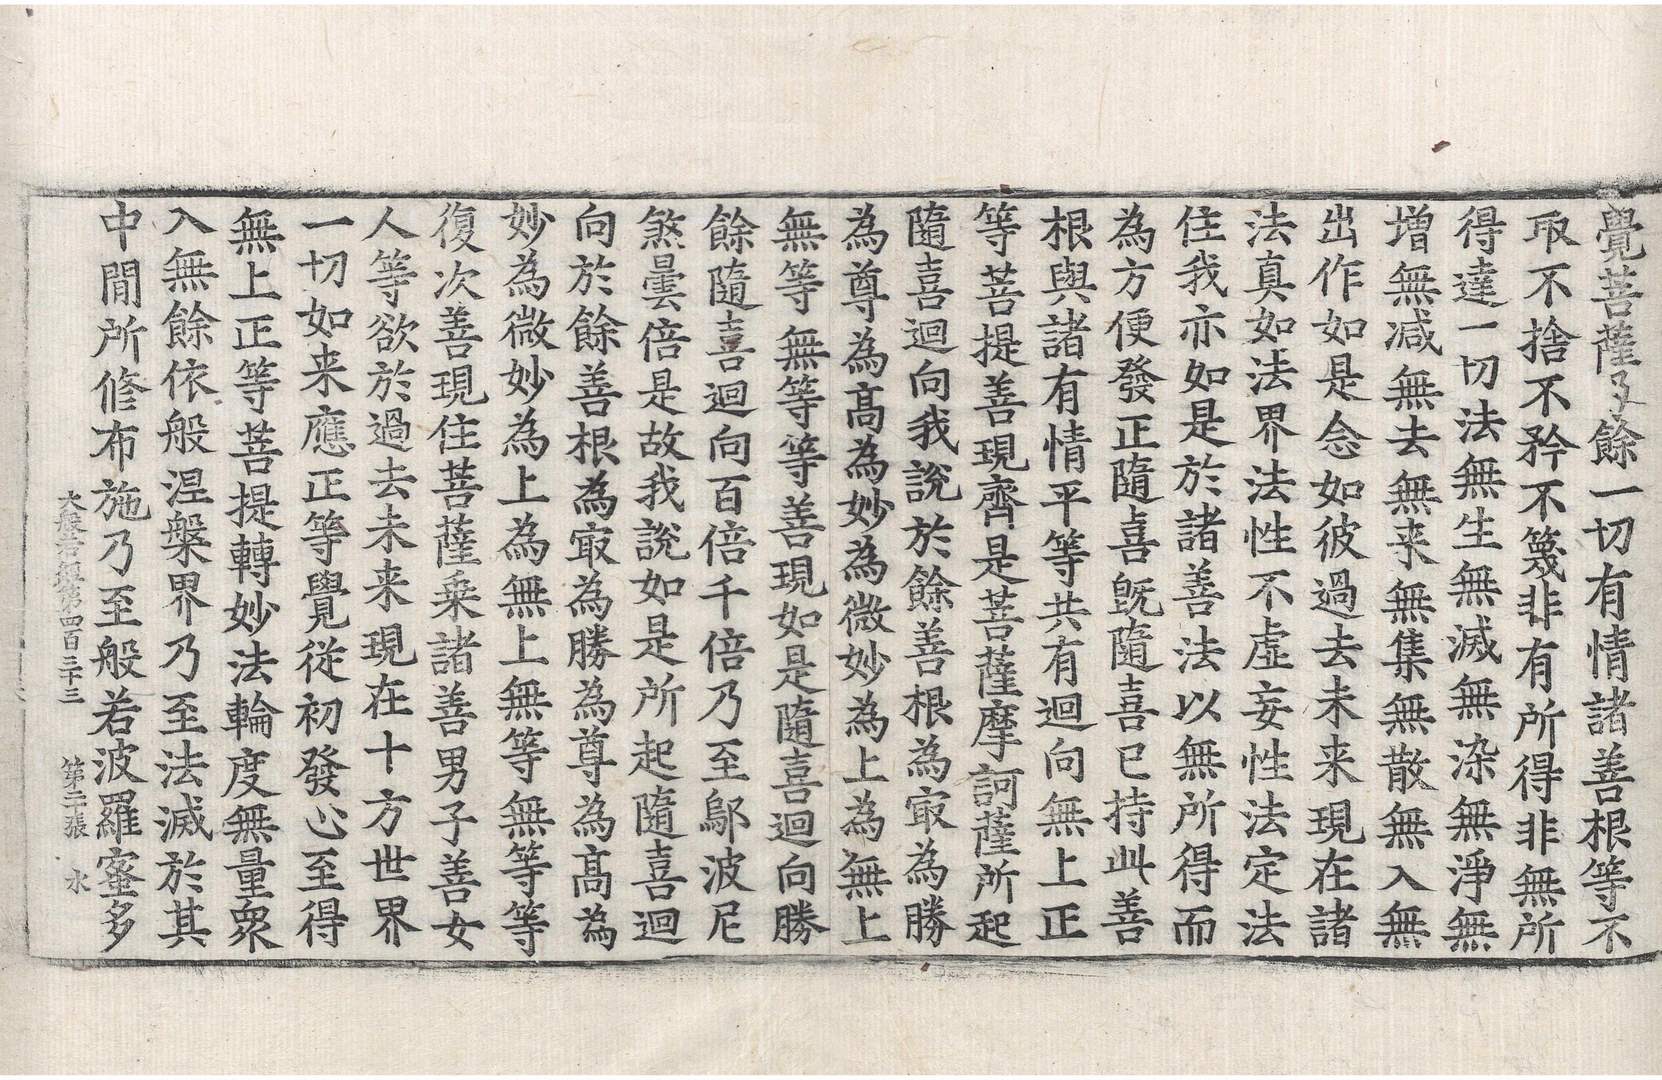 覺菩薩及餘一切有情諸善根等不
取不捨不矜不篾非有所得非無所
得達一切法無生無滅無染無淨無
增無减無去無来無集無散無入無
出作如是念如彼過去未来現在諸
法真如法界法性不虛妄性法定法
住我亦如是於諸善法以無所得而
為方便發正隨喜既隨喜已持此善
根與諸有情平等共有迴向無上正
等菩提善現齊是菩薩摩訶薩所起
隨喜迴向我說於餘善根為㝡為勝
為尊為髙為妙為微妙為上為無上
無等無等等善現如是隨喜迴向勝
餘隨喜迴向百倍千倍乃至鄔波尼
煞曇倍是故我說如是所起隨喜迴
向於餘善根為㝡為勝為尊為髙為
妙為微妙為上為無上無等無等等
復次善現住菩薩乗諸善男子善女
人等欲於過去未来現在十方世界
一切如来應正等覺從初發心至得
無上正等菩提轉妙法輪度無量衆
入無餘依般涅槃界乃至法滅於其
中間所修布施乃至般若波羅蜜多
大般若經第四百三十三　第二張　水